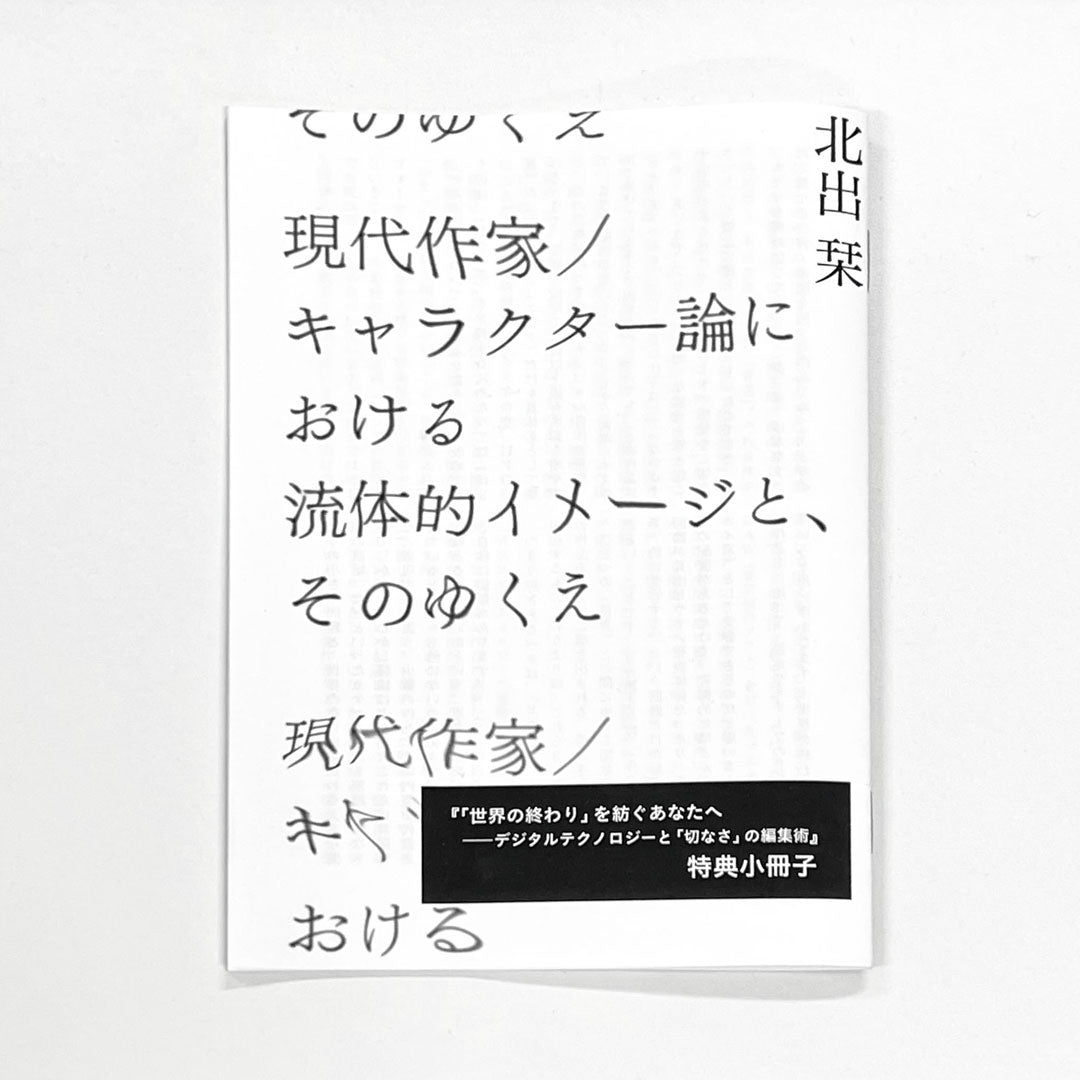 そのゆくえ
北出 栞
現代作家／
キャラクター論に
おける
流体的イメージと、
そのゆくえ
現代作家／
キャ
おける
『「世界の終わり」を紡ぐあなたへ
──デジタルテクノロジーと「切なさ」の編集術』
特典小冊子